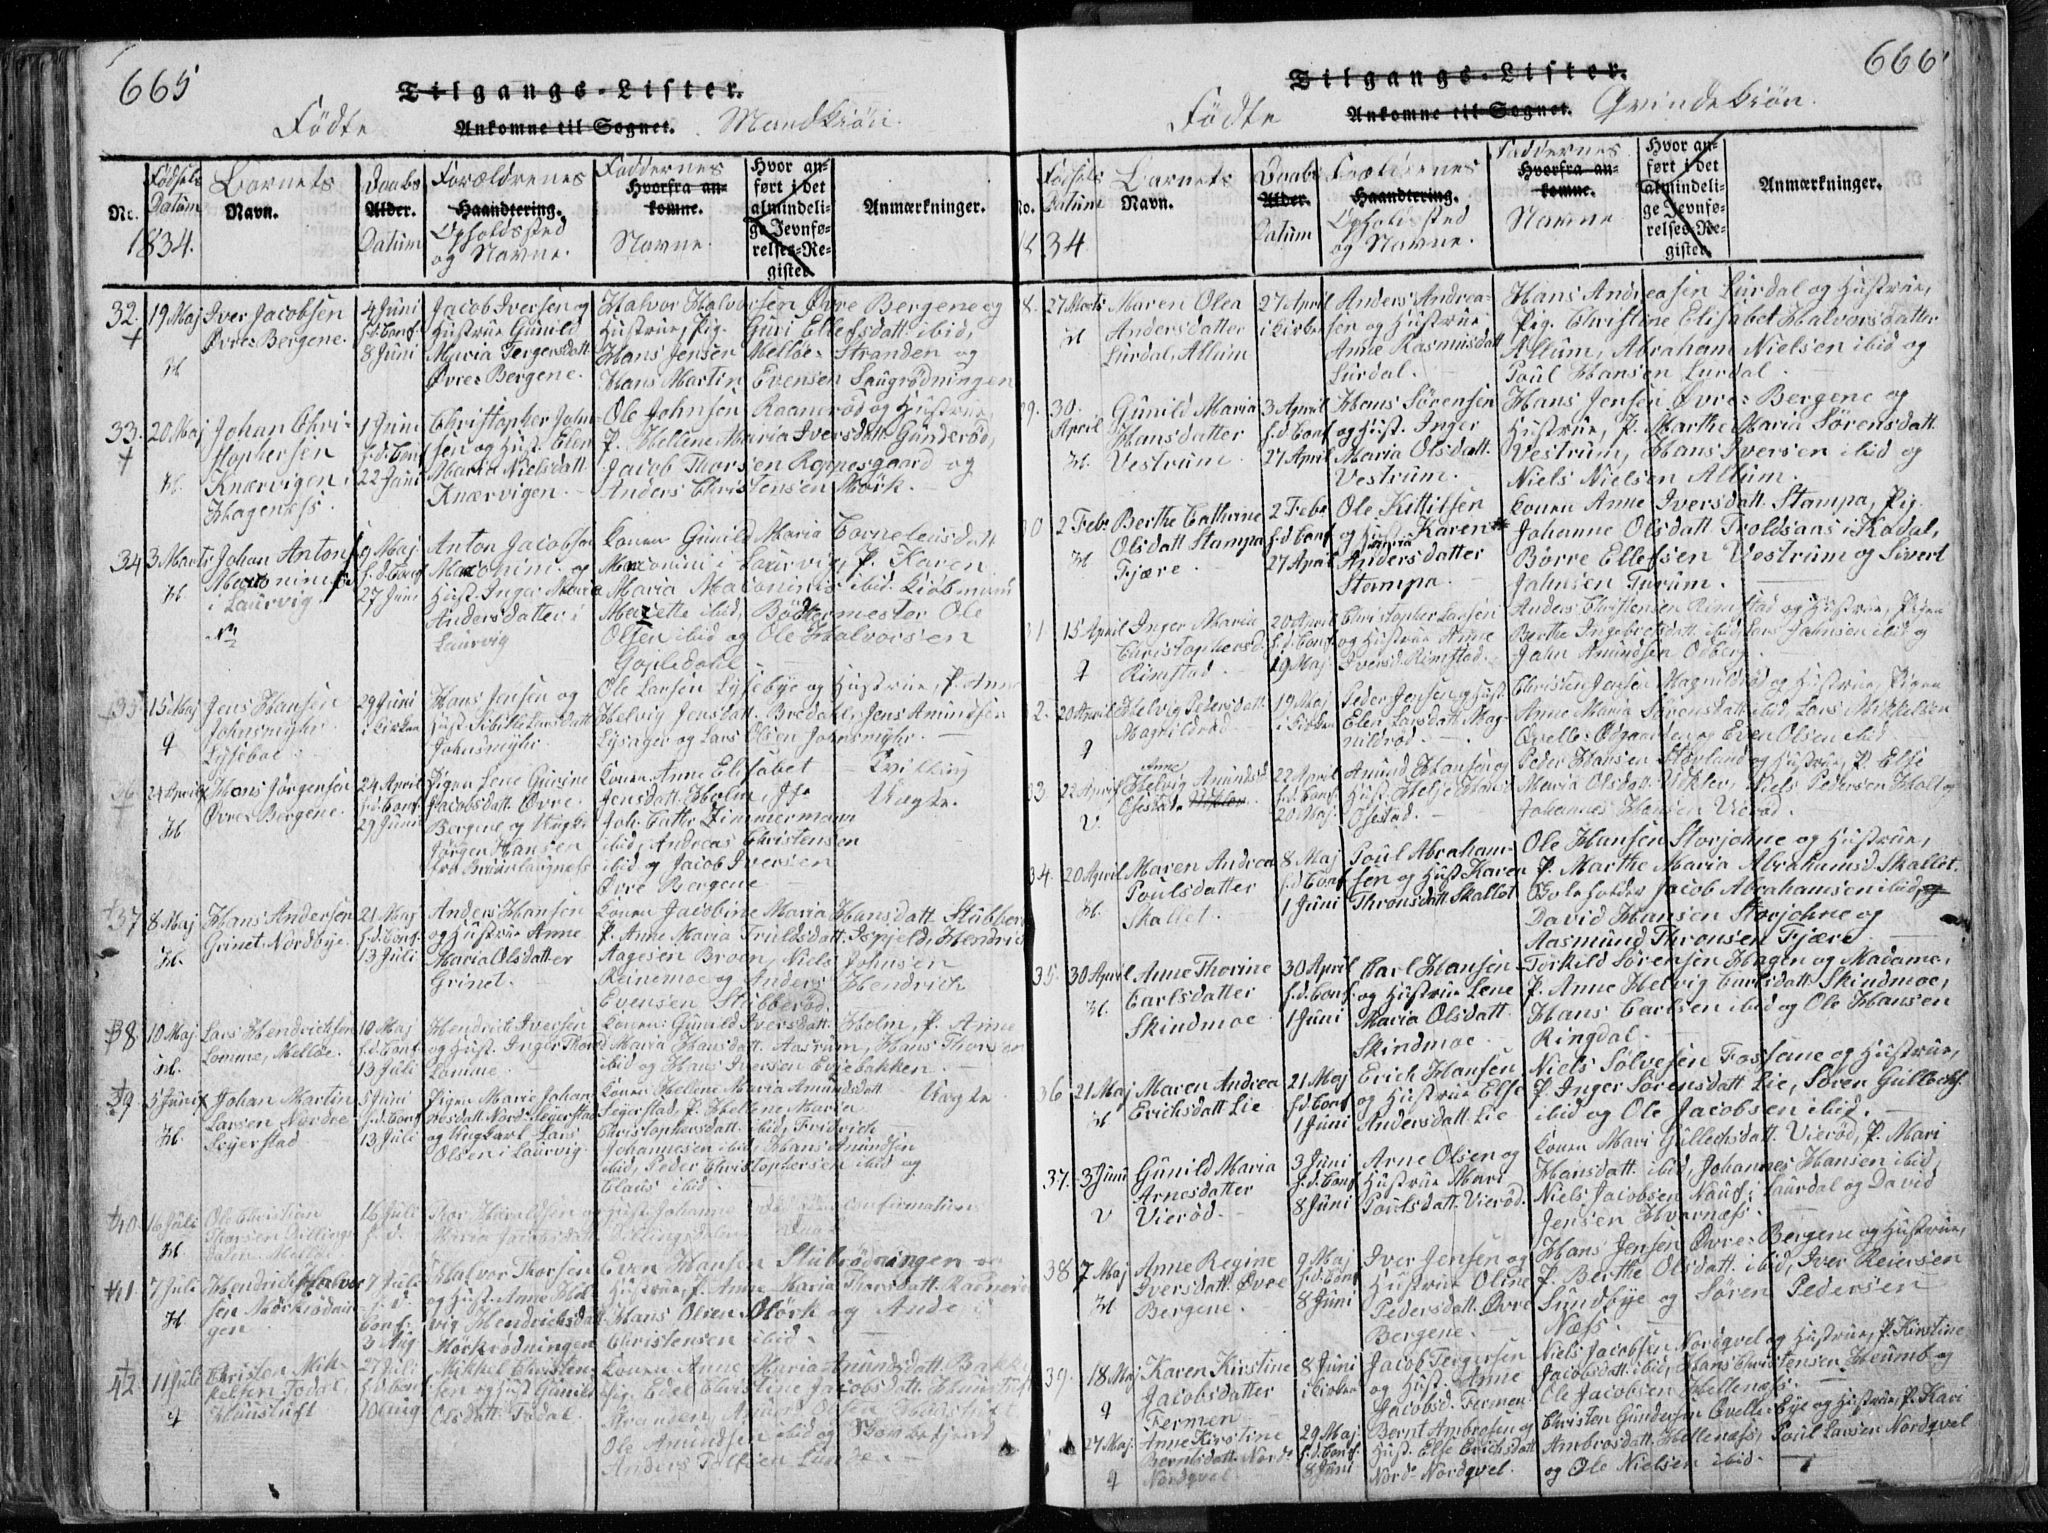 665
Tilgangs-Lister.
Födte Ankomne til Sognet. Mandkiön.
No.
1834.
Födsels Datum
Barnets Navn.
Daabs Alder. Datum
Forældrenes Haandtering. Opholdssted og Navne.
Faddernes Hvorfra ankomne. Navne.
Hvor anført i det almindelige Jevnførelses-Register
Anmærkninger.
32.
19 Maj
H
Iver Jacobsen
Øvre Bergene.
4 Juni
f.d. Conf
8 Juni
Jacob Iversen og
Hustrue Gunild
Maria Tergersdatt
Øvre Bergene.
Halvor Halvorsen Øvre Bergene og
Hustrue, Pig. Guri Ellefsdatt. ibid,
Hans Jensen Melløe Stranden og
Hans Martin Evensen Saugrödningen
33.
20 Maj
H.
Johan Chri-
stophersen
Knærvigen i
Hagenæss.
1 Juni
f.d. Conf
22 Juni
Christopher John-
sen og Hust. Elen
Maria Nielsdatt.
Knærvigen.
Ole Johnsen Raanerød og Hustrue,
P. Hellene Maria Iversdatt. Gunderød,
Jacob Thorsen Reppesgaard og
Anders Christensen Mörk.
34
3 Marts
H
Johan Anton
Maconini
i Laurvig
9 Maj
f.d. Conf
27 Juni
Anton Jacobsen
Maconini og
Hust. Inger Maria
Andersdatter i
Laurvig
Konen Gunild Maria Corneleusdatt
Maconini i Laurvig, P. Karen
Maria Maconinis ibid. Kiöbmand
Marette ibid, Bödkermester Ole
Olsen ibid og Ole Halvorsen
Gopledahl
35
15 Maj
q
Jens Hansen
Johnsmyhr
Lyseboe
29 Juni
i Kirken
Hans Jensen og
Hust Sibille Larsdatt
Johnsmyhr.
Ole Larsen Lysebye og Hustrue, P. Anne
Helvig Jensdatt. Bredahl, Jens Amundsen
Lysager og Lars Olsen Johnsmyhr.
36
24 April
H.
Hans Jørgensen
Øvre Bergene.
24 April
f.d. Conf.
29 Juni
Pigen Lene Gurine
Jacobsdatt. Øvre
Bergene og Ungk.
Jörgen Hansen
fra Brunlaugnæss
Konen Anne Elisabet
Jensdatt. Holm, Jfr
Joh. Cathr Zimmermann
ibid, Andreas Christensen
ibid og Jacob Iversen
Øvre Bergene
Tvilling
Uægte.
37
8 Maj
H.
Hans Andersen
Grinet Nordbye.
21 Maj
f.d. Conf.
13 Juli
Anders Hansen
og Hustrue Anne
Maria Olsdatter
Grinet.
Konen Jacobine Maria Hansdatt. Stubberød
P. Anne Maria Trulsdatt. Ispjeld, Hendrich
Aagesen Broen, Niels Johnsen
Reinemoe og Anders Hendrich
Evensen Stubberød.
38
10 Maj
H.
Lars Hendrichsen
Lomme, Melløe.
10 Maj
f.d. Conf
13 Juli
Hendrich Iversen
og Hust. Inger Thorsd
Lomme.
Konen: Gunild Iversdatt. Holm, P. Anne
Maria Hansdatt. Aasrum, Hans Thorsen
ibid og Hans Iversen Eriebakken.
39
5 Juni
H.
Johan Martin
Larsen Nordre
Seierstad
5 Juni
f.d. Conf
13 Juli
Pigen Marie Johan-
nesdatt Nord. Seierstad
og Ungkarl Lars
Olsen i Laurvig
Konen Hellene Maria Amundsdatt
Seierstad, P. Hellene Maria
Christophersdatt. ibid, Fridrich
Johannesen ibid, Hans Amundsen
ibid, Peder Christophersen ibid og
Claus ibid.
Uægte.
40
16 Juli
H.
Ole Christian
Thorsen Dillings-
dalen Melløe
16 Juli
f.d.
Thor Haraldsen og Hust. Johanne
Maria Jacobsdatt. Dillingsdalen
confirmation
41
7 Juli
H.
Hendrich Halvor-
sen Mörkrödnin-
gen
7 Juli
f.d.
Conf.
3 Aug
Halvor Thorsen
og Hust. Anne Hel-
vig Hendrichsdatt
Mörkrödningen
Even Hansen Stubrödningen og
Hustrue, P. Anne Maria Thorsdatt. Raanerød
Hans Olsen Mörk og Ande
Christensen ibid.
42
11 Juli
q
Christen Mik-
kelsen Todal,
Haustuft
27 Juli
f.d. Conf
10 Aug
Mikkel Christen-
sen og Hust Gunild
Olsdatt. Todal.
Konen Anne Maria Amundsdatt. Bakke
Pig. Edel Christine Jacobsdatt. Haustuft
Stranden, Amund Olsen Haustuft
Ole Amundsen ibid og
Anders Lunde.
666
Tilgangs-Lister.
Födte Ankomne til Sognet. Qvindekiön.
No.
1834
Födsels Datum
Barnets Navn.
Daabs Alder. Datum
Forældrenes Haandtering. Opholdssted og Navne.
Faddernes Hvorfra ankomne. Navne
Hvor anført i det almindelige Jevnførelses-Register
Anmærkninger.
8.
27 Marts
H
Maren Olea
Andersdatter
Lurdal, Allum
27 April
i Kirken
Anders Andrea-
sen og Hustrue
Anne Rasmusdatt
Lurdal.
Hans Andreasen Lurdal og Hustrue,
Pig. Christine Elisabet Halvorsdatter
Allum, Abraham Nielsen ibid og
Poul Hansen Lurdal.
9.
30.
April
H.
Gunild Maria
Hansdatter
Vestrum.
3 April
f.d. Conf
27 April
Hans Sörensen
og Hust. Inger
Maria Olsdatt.
Vestrum.
Hans Jensen Øvre Bergene og
Hustrue, P. Marthe Maria Sörensdatt.
Vestrum, Hans Iversen ibid og
Niels Nielsen Allum.
30
2 Febr
H
Berthe Cathrine
Olsdatt Stampa
Fjære
2 Febr
f.d. Conf
27 April
Ole Kittilsen
og Hustrue Karen
Maria
Andersdatter
Stampa
Konen Anne Iversdatt. Stampa, Pig.
Johanne Olsdatt Troldsaas i Kodal,
Börre Ellefsen Vestrum og Sivert
Johnsen Furum.
31
15 April
q
Inger Maria
Christophersd.
Rimstad
20 April
f.d. Conf
19 Maj.
Christopher Larsen
og Hustrue Anne
Iversd. Rimstad.
Anders Christensen Rimstad og Hustrue, Pigen
Berthe Ingebretsdatt. ibid, Lars Johnsen ibid og
John Amundsen Odberg.
2.
20 April
q
Helvig Pedersdatt.
Magnildrød
19 Maj
i Kirken
Peder Jensen og Hust
Elen Larsdatt Mag-
nildrød.
Christen Jensen Magnildrød og Hustrue, Pigen
Anne Maria Sörensdatt ibid, Lars Mikkelsen
Qvelle og Even Olsen ibid
33
22 April
V.
Anne
Helvig Amundsd.
Ofestad
22 April
f.d. Conf
20 Maj.
Amund Hansen og
Hust. Helje Hansd
Ofestad.
Peder Hansen Støvland og Hustrue, P. Else
Maria Olsdatt. Vikler, Niels Pedersen Holt og
Johannes Hansen Vierød.
34.
20 April
H.
Maren Andrea
Poulsdatter
Skallet.
8 Maj
f.d. Conf
1 Juni
Poul Abraham-
sen og Hust Karen
Thronsdatt Skallet
Ole Hansen Storjohne og Hustrue,
P. Marthe Maria Abrahamsd. Skallet.
Jacob Abrahamsen ibid, og
David Hansen Storjohne og
Aasmund Thronsen Fjære
35.
30 April
H.
Anne Thorine
Carlsdatter
Skindmoe
30 April
f.d. Conf.
1 Juni
Carl Hansen
og Hustrue Lene
Maria Olsdatt.
Skindmoe
Torkild Sörensen Hagen og Madame,
P. Anne Helvig Carlsdatt Skindmoe,
Hans Carlsen ibid og Ole Hansen
Ringdal.
36
21 Maj
H
Maren Andrea
Erichsdatt Lie
21 Maj
f.d. Conf
1 Juni
Erich Hansen
og Hustrue Else
Andersdatt Lie
Niels Solvesen Fossene og Hustrue,
P. Inger Sörensdatt Lie, Sören Gullechs.
ibid og Ole Jacobsen ibid.
37.
3 Juni
V
Gunild Maria
Arnesdatter
Vierød.
3 Juni
f.d. Conf.
8 Juni
Arne Olsen og
Hustrue Mari
Poulsdatt. Vierød.
Konen Mari Gullechsdatt. Vierød, P. Mari
Hansdatt. ibid, Johannes Hansen ibid
Niels Jacobsen Nauf i Laurdal og David
Jensen Hvarnæss.
38
7 Maj
H
Anne Regine
Iversdatt. Øvre
Bergene.
9 Maj
f.d. Conf
8 Juni
Iver Jensen og
Hustrue Oline
Pedersdatt. Øvre
Bergene.
Hans Jensen Øvre Bergene og Hustrue,
P. Berthe Olsdatt. ibid, Iver Reiersen
Sundbye og Sören Pedersen
Næss.
39.
18 Maj
q
Karen Kirstine
Jacobsdatter
Fermen
8 Juni
i Kirken
Jacob Tergersen
og Hust. Anne
Jacobsd. Fermen.
Niels Jacobsen Nordqvel og Hustrue, P. Kirstine
Jacobsdatt. ibid, Hans Christensen Heumb og
Ole Jacobsen Hellenæss.
27 Maj.
q
Anne Kirstine
Berntsdatt. Nord.
Nordqvel
29 Maj
f.d. Conf
8 Juni
Bernt Ambrosen og
Hust. Else Erichsdatt
Nord. Nordqvel.
Christen Gundersen Qvelle Eye og Hustrue, P. Kari
Ambrosdatt. Hellenæss, Poul Larsen Nordqvel
og Ole Nielsen ibid.